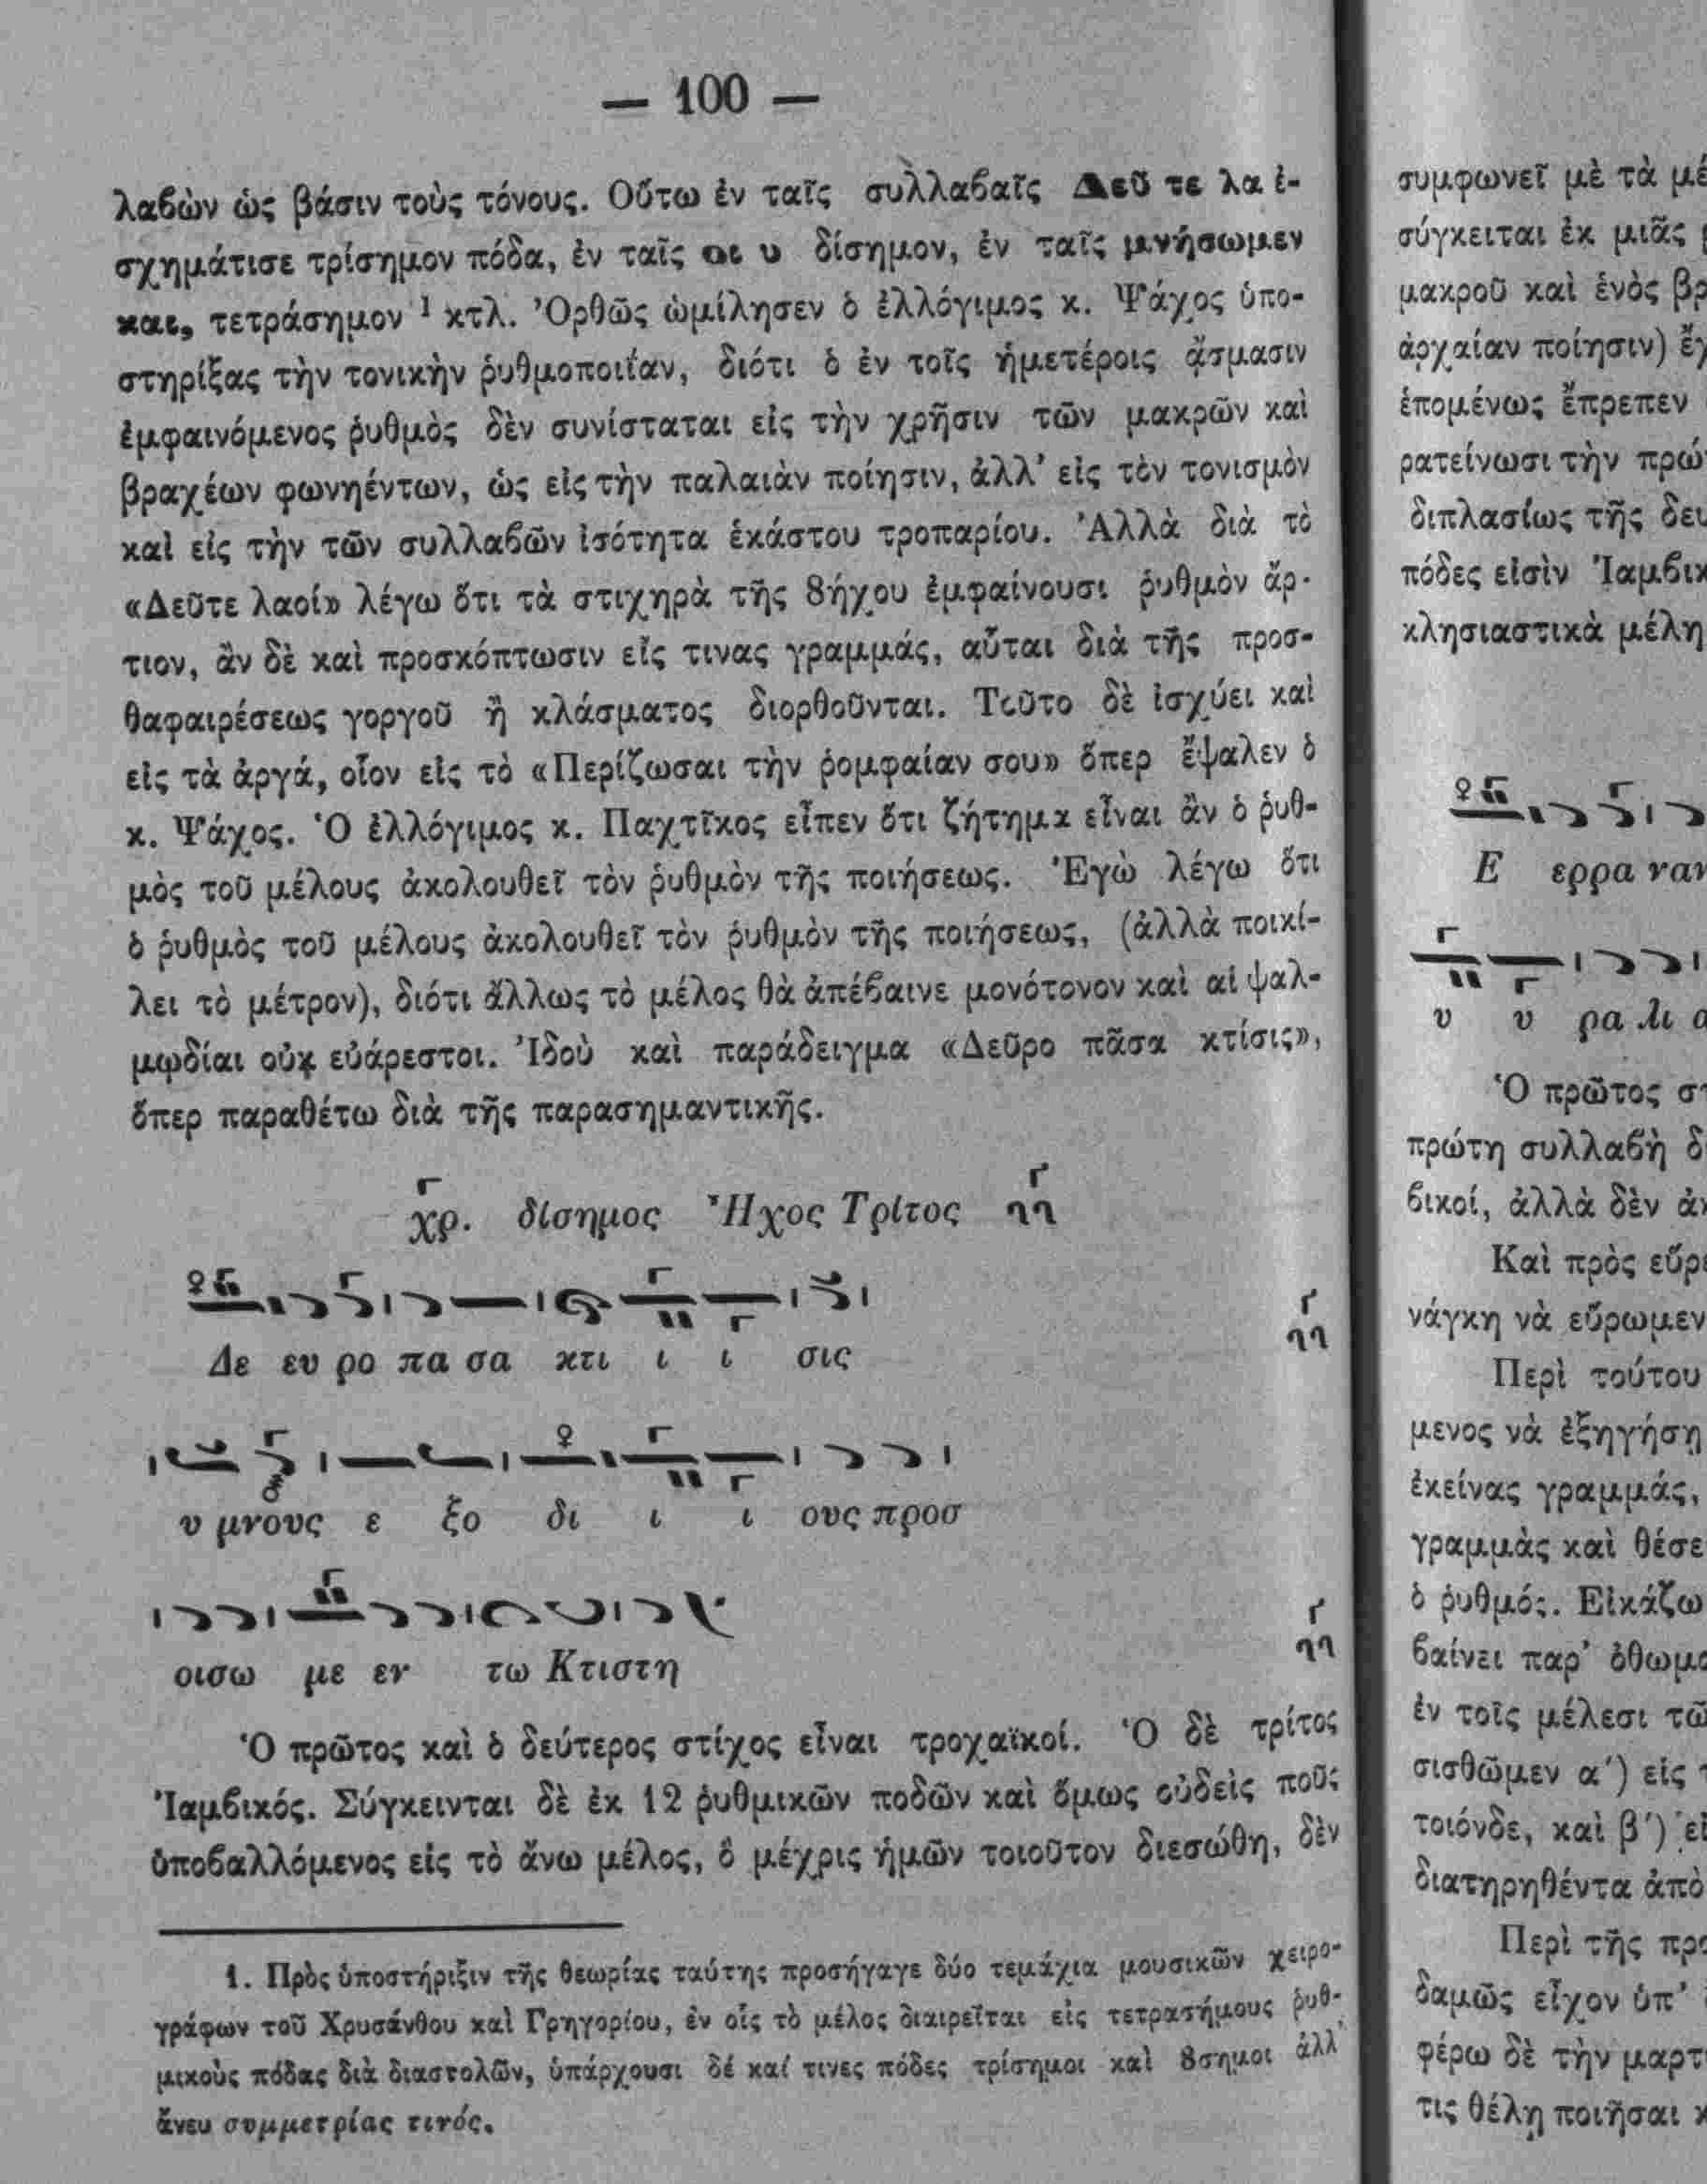 — 100 —
λαβὼν ὡς βάσιν τοὺς τόνους. Οὕτω ἐν ταῖς συλλαβαῖς Δεῦ τε λα ἐ-
σχημάτισε τρίσημον πόδα, ἐν ταῖς οι υ δίσημον, ἐν ταῖς μνήσωμεν
και, τετράσημον ¹ κτλ. Ὀρθῶς ὡμίλησεν ὁ ἐλλόγιμος κ. Ψάχος ὑπο-
στηρίξας τὴν τονικὴν ῥυθμοποιΐαν, διότι ὁ ἐν τοῖς ἡμετέροις ᾄσμασιν
ἐμφαινόμενος ῥυθμὸς δὲν συνίσταται εἰς τὴν χρῆσιν τῶν μακρῶν καὶ
βραχέων φωνηέντων, ὡς εἰς τὴν παλαιὰν ποίησιν, ἀλλ’ εἰς τὸν τονισμὸν
καὶ εἰς τὴν τῶν συλλαβῶν ἰσότητα ἑκάστου τροπαρίου. Ἀλλὰ διὰ τὸ
«Δεῦτε λαοί» λέγω ὅτι τὰ στιχηρὰ τῆς 8ήχου ἐμφαίνουσι ῥυθμὸν ἄρ-
τιον, ἂν δὲ καὶ προσκόπτωσιν εἴς τινας γραμμάς, αὗται διὰ τῆς προσ-
θαφαιρέσεως γοργοῦ ἢ κλάσματος διορθοῦνται. Τοῦτο δὲ ἰσχύει καὶ
εἰς τὰ ἀργά, οἷον εἰς τὸ «Περίζωσαι τὴν ῥομφαίαν σου» ὅπερ ἔψαλεν ὁ
κ. Ψάχος. Ὁ ἐλλόγιμος κ. Παχτῖκος εἶπεν ὅτι ζήτημα εἶναι ἂν ὁ ῥυθ-
μὸς τοῦ μέλους ἀκολουθεῖ τὸν ῥυθμὸν τῆς ποιήσεως. Ἐγὼ λέγω ὅτι
ὁ ῥυθμὸς τοῦ μέλους ἀκολουθεῖ τὸν ῥυθμὸν τῆς ποιήσεως, (ἀλλὰ ποικί-
λει τὸ μέτρον), διότι ἄλλως τὸ μέλος θὰ ἀπέβαινε μονότονον καὶ αἱ ψαλ-
μῳδίαι οὐκ εὐάρεστοι. Ἰδοὺ καὶ παράδειγμα «Δεῦρο πᾶσα κτίσις»,
ὅπερ παραθέτω διὰ τῆς παρασημαντικῆς.
χρ. δίσημος Ἦχος Τρίτος
Δε ευ ρο πα σα κτι ι ι σις
υ μνους ε ξο δι ι ι ους προσ
οισω με εν τω Κτιστη
Ὁ πρῶτος καὶ ὁ δεύτερος στίχος εἶναι τροχαϊκοί. Ὁ δὲ τρίτος
Ἰαμβικός. Σύγκεινται δὲ ἐκ 12 ῥυθμικῶν ποδῶν καὶ ὅμως οὐδεὶς ποῦς
ὑποβαλλόμενος εἰς τὸ ἄνω μέλος, ὃ μέχρις ἡμῶν τοιοῦτον διεσώθη, δὲν
1. Πρὸς ὑποστήριξιν τῆς θεωρίας ταύτης προσήγαγε δύο τεμάχια μουσικῶν χειρο-
γράφων τοῦ Χρυσάνθου καὶ Γρηγορίου, ἐν οἷς τὸ μέλος διαιρεῖται εἰς τετρασήμους ῥυθ-
μικοὺς πόδας διὰ διαστολῶν, ὑπάρχουσι δέ καί τινες πόδες τρίσημοι καὶ 8σημοι ἀλλ’
ἄνευ συμμετρίας τινός.
συμφωνεῖ μὲ τὰ
σύγκειται ἐκ μιᾶς
μακροῦ καὶ ἑνὸς
ἀρχαίαν ποίησιν)
ἑπομένως ἔπρεπεν
ρατείνωσι τὴν
διπλασίως τῆς
πόδες εἰσὶν
κλησιαστικὰ μέλη
Ε ερρα
υ υ ρα λι
Ὁ πρῶτος
πρώτη συλλαβὴ
βικοί, ἀλλὰ δὲν
Καὶ πρὸς
νάγκη νὰ εὕρωμεν
Περὶ τούτου
μενος νὰ ἐξηγήσῃ
ἐκείνας γραμμάς,
γραμμὰς καὶ
ὁ ῥυθμός. Εἰκάζω
βαίνει παρ’
ἐν τοῖς μέλεσι
σισθῶμεν α΄) εἰς
τοιόνδε, καὶ β΄)
διατηρηθέντα ἀπὸ
Περὶ τῆς
δαμῶς εἶχον ὑπ’
φέρω δὲ τὴν
τις θέλῃ ποιῆσαι